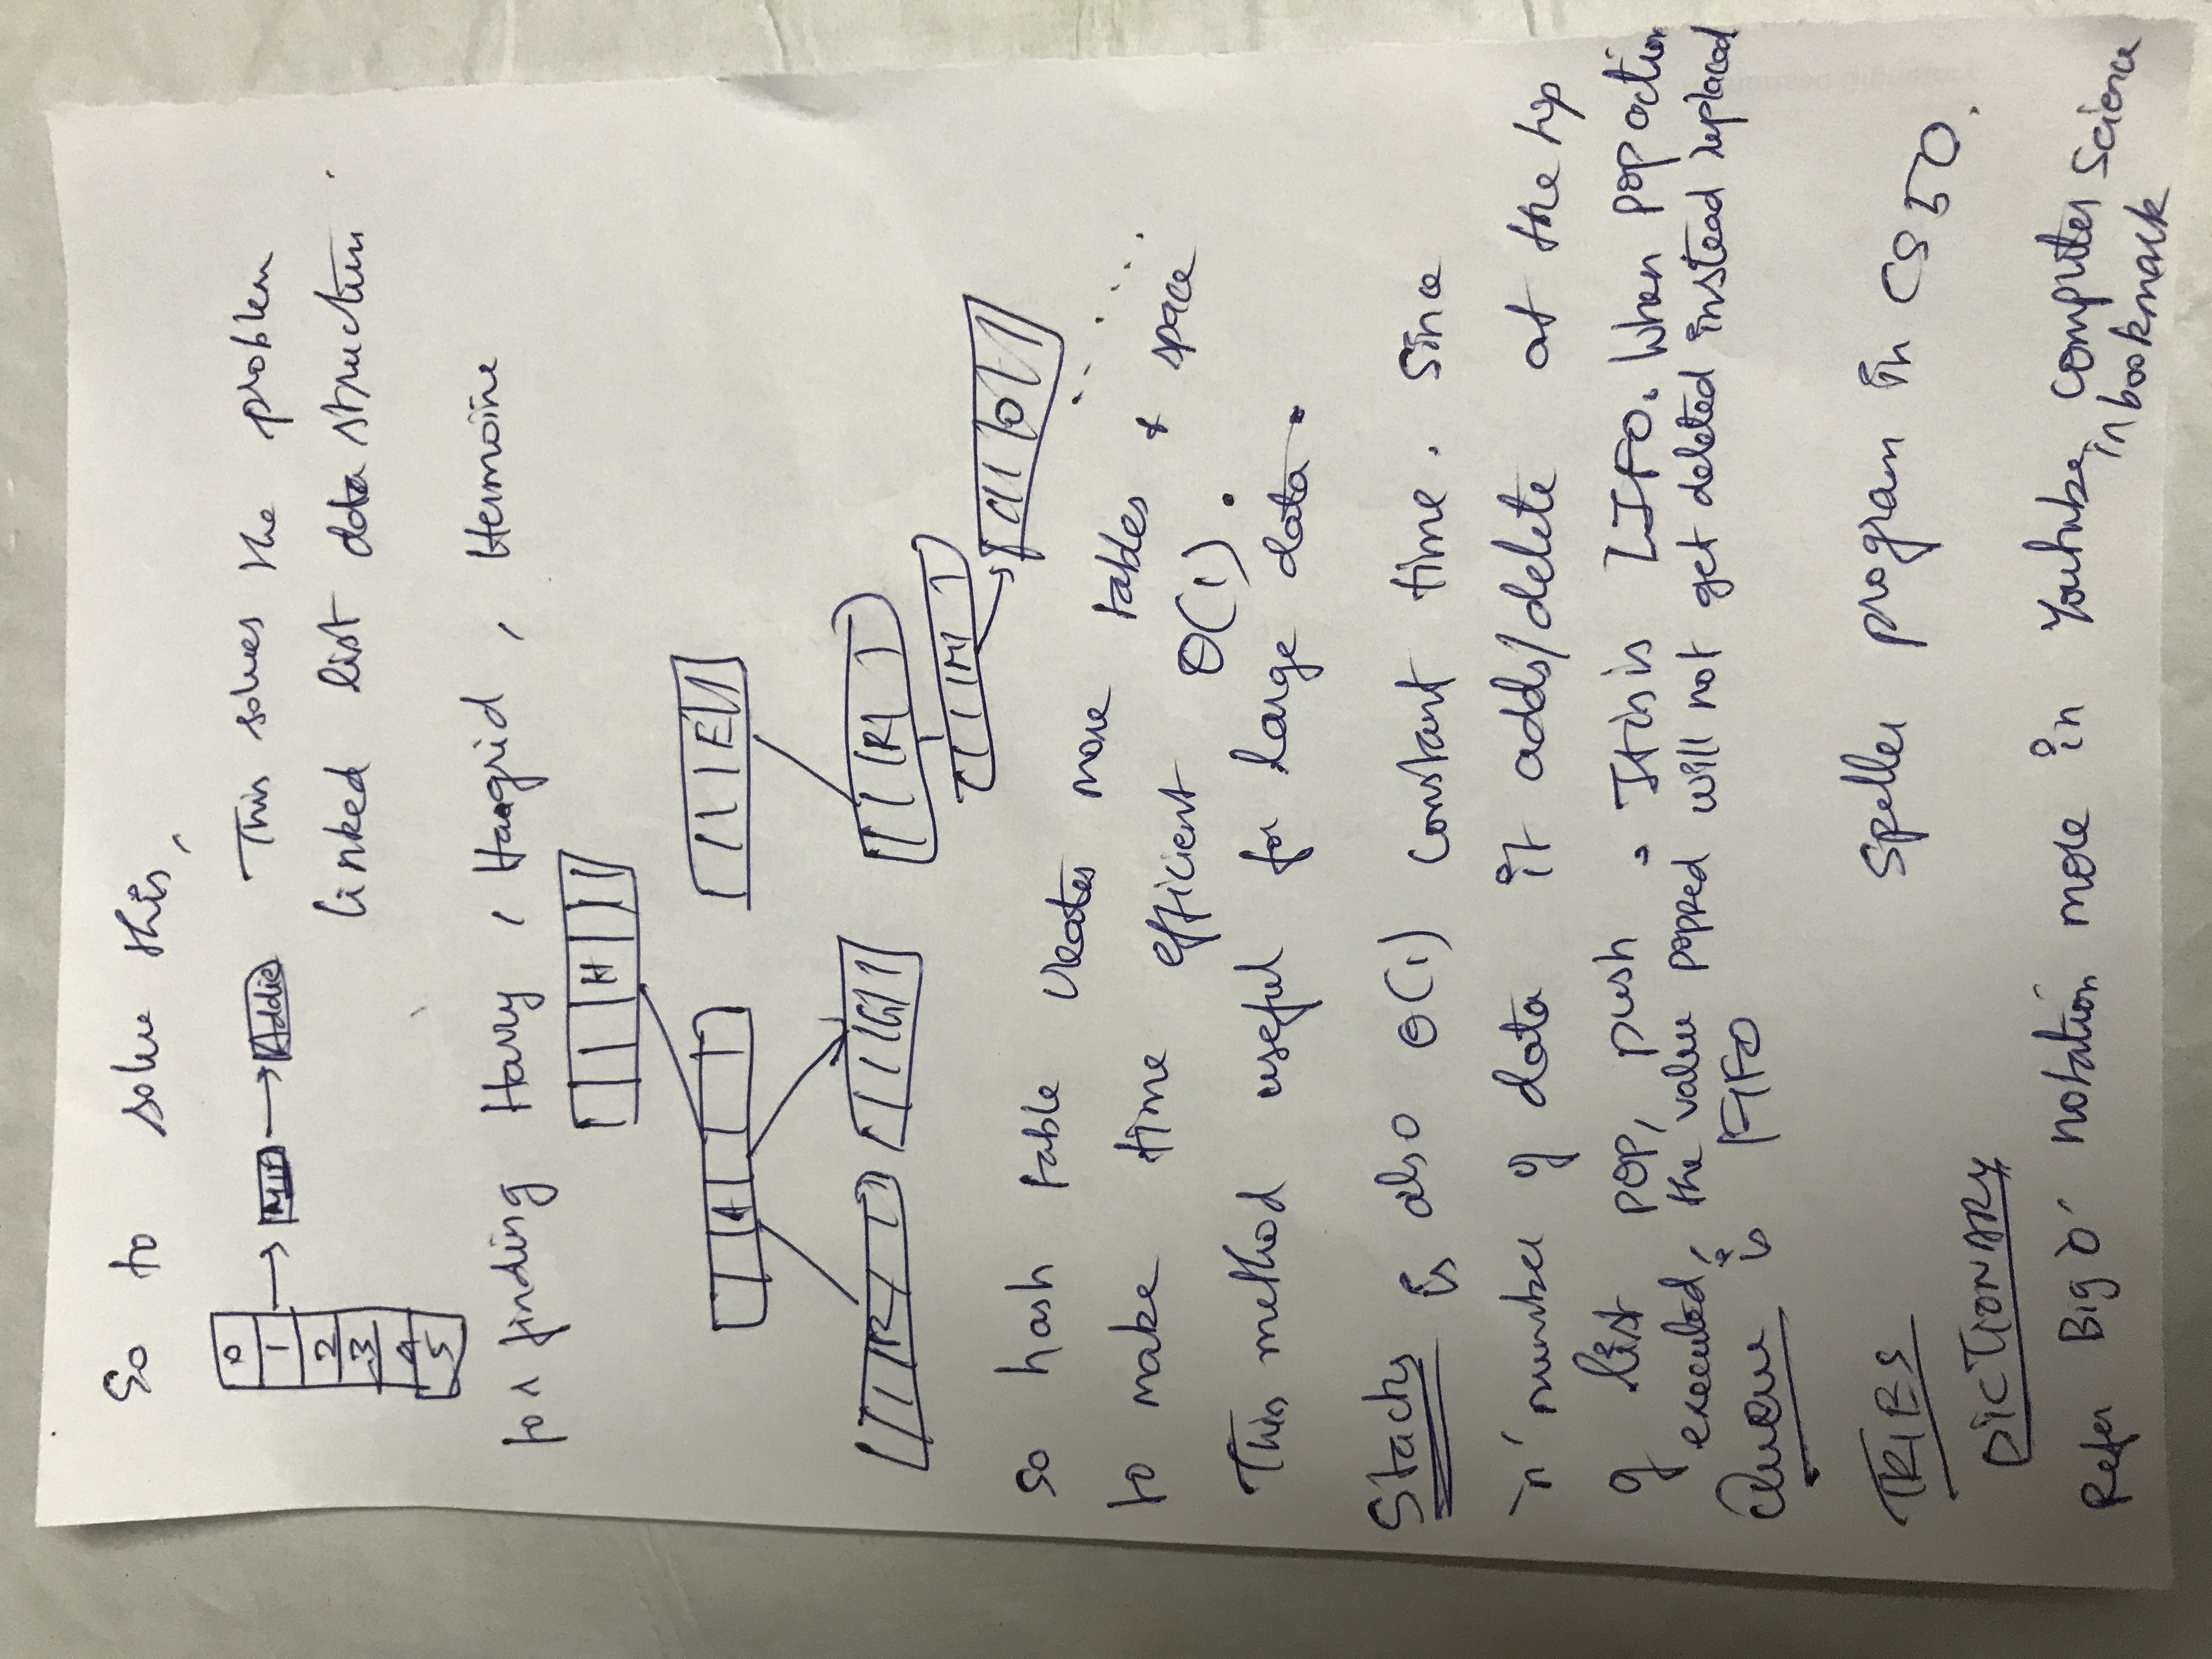 So to solve this,
0
1 → → Addie This solves the problem
2 linked list data structure
3
4
5
for finding Harry, Haagrid, Hermoine
H
A E
R G R
M
O
so hash table creates more tables & space
to make time efficient O(1).
This method useful for large data.
Stacks is also O(1) constant time. Since
'n' number of data it adds/delete at the top
of list pop, push. It is is LIFO. When pop action
executed, the value popped will not get deleted instead replaced
Queue is FIFO
TRIES Speller program in CS50.
DICTIONARY
Refer Big 'O' notation more in Youtube, computer science
in bookmark